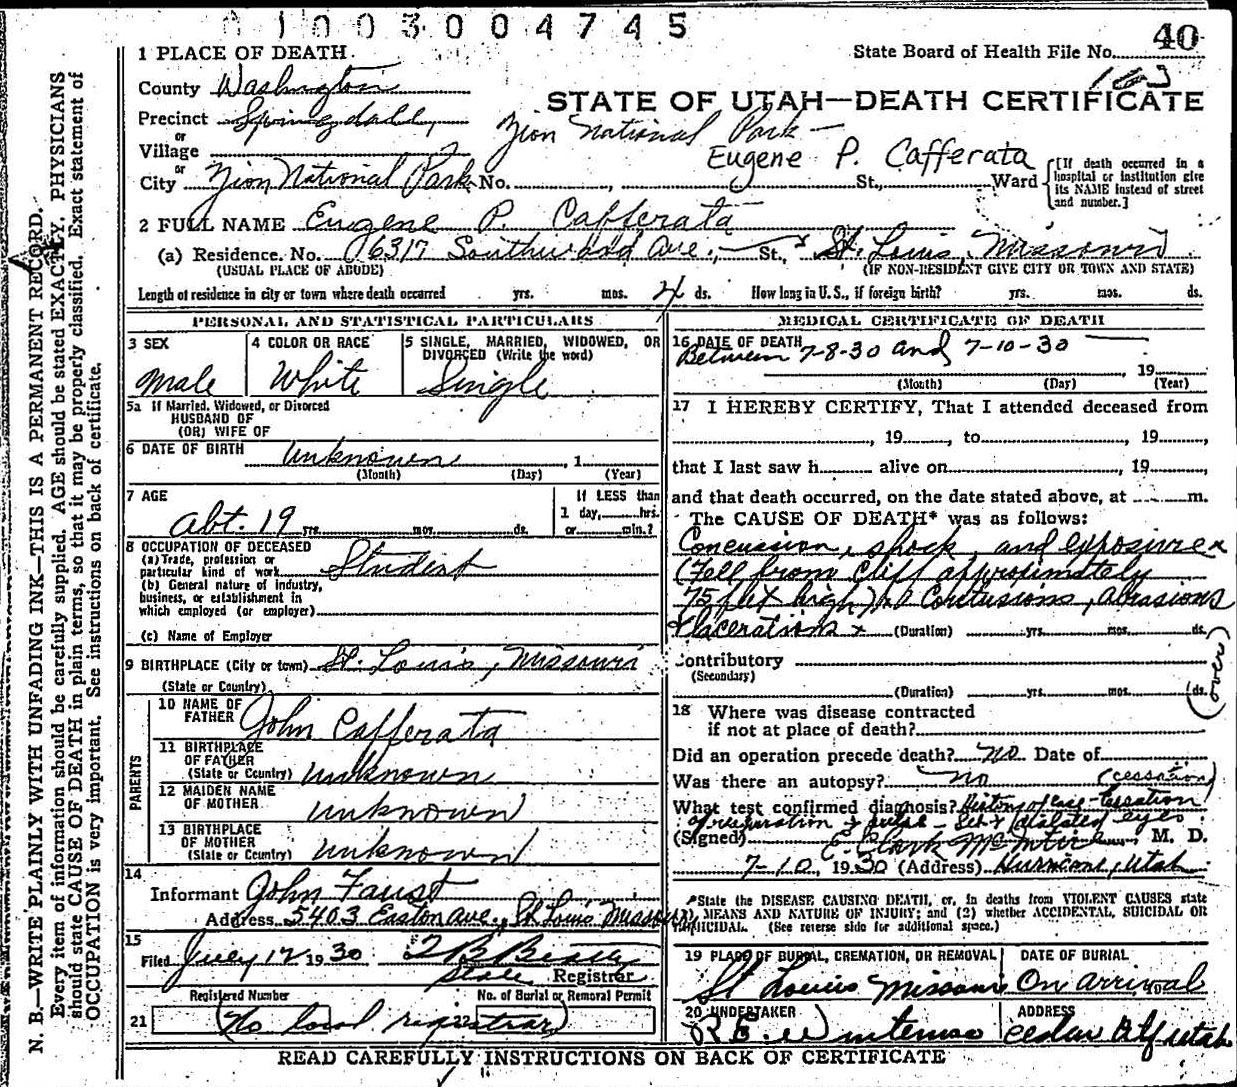 0 1 0 0 3 0 0 4 7 4 5
40
1 PLACE OF DEATH
State Board of Health File No.
163
County Washington
STATE OF UTAH—DEATH CERTIFICATE
Precinct Springdale,
Zion National Park —
or
Village
Eugene P. Cafferata
or
City Zion National Park No. , St., Ward
[If death occurred in a hospital or institution give its NAME instead of street and number.]
2 FULL NAME Eugene P. Cafferata
(a) Residence. No. 6317 Southwood Ave., St., St. Louis, Missouri
(USUAL PLACE OF ABODE) (IF NON-RESIDENT GIVE CITY OR TOWN AND STATE)
Length of residence in city or town where death occurred yrs. mos. 4 ds. How long in U.S., if foreign birth? yrs. mos. ds.
PERSONAL AND STATISTICAL PARTICULARS
3 SEX
Male
4 COLOR OR RACE
White
5 SINGLE, MARRIED, WIDOWED, OR DIVORCED (Write the word)
Single
5a If Married, Widowed, or Divorced
HUSBAND OF
(OR) WIFE OF
6 DATE OF BIRTH Unknown , 1
(Month) (Day) (Year)
7 AGE
Abt. 19 yrs. mos. ds.
If LESS than
1 day, hrs.
or min.?
8 OCCUPATION OF DECEASED
(a) Trade, profession or
particular kind of work Student
(b) General nature of industry,
business, or establishment in
which employed (or employer)
(c) Name of Employer
9 BIRTHPLACE (City or town) St. Louis, Missouri
(State or Country)
PARENTS
10 NAME OF
FATHER John Cafferata
11 BIRTHPLACE
OF FATHER
(State or Country) Unknown
12 MAIDEN NAME
OF MOTHER Unknown
13 BIRTHPLACE
OF MOTHER
(State or Country) Unknown
14
Informant John Faust
Address 5403 Easton Ave., St Louis Missouri
15
Filed July 12 1930
State Registrar
Registered Number No. of Burial or Removal Permit
21 (No local registrar) 22
MEDICAL CERTIFICATE OF DEATH
16 DATE OF DEATH
Between 7-8-30 and 7-10-30
, 19
(Month) (Day) (Year)
17 I HEREBY CERTIFY, That I attended deceased from
, 19 , to , 19 ,
that I last saw h alive on , 19 ,
and that death occurred, on the date stated above, at m.
The CAUSE OF DEATH* was as follows:
Concussion, shock, and exposure x
(Fell from cliff approximately
75 feet high) Contusions, abrasions
& lacerations x (Duration) yrs. mos. ds.
Contributory
(Secondary)
(Duration) yrs. mos. ds.
(over)
18 Where was disease contracted
if not at place of death?
Did an operation precede death? No Date of
Was there an autopsy? No (cessation)
What test confirmed diagnosis? History of case - Cessation
of respiration & pulse - Set & dilated eyes
(Signed) E. Clark McIntire M. D.
7-10, 1930 (Address) Hurricane, Utah
*State the DISEASE CAUSING DEATH, or, in deaths from VIOLENT CAUSES state
MEANS AND NATURE OF INJURY; and (2) whether ACCIDENTAL, SUICIDAL OR
HOMICIDAL. (See reverse side for additional space.)
19 PLACE OF BURIAL, CREMATION, OR REMOVAL
St Louis Missouri
DATE OF BURIAL
On arrival
20 UNDERTAKER
ADDRESS
Utah
READ CAREFULLY INSTRUCTIONS ON BACK OF CERTIFICATE
N. B.—WRITE PLAINLY WITH UNFADING INK—THIS IS A PERMANENT RECORD.
Every item of information should be carefully supplied. AGE should be stated EXACTLY. PHYSICIANS
should state CAUSE OF DEATH in plain terms, so that it may be properly classified. Exact statement of
OCCUPATION is very important. See instructions on back of certificate.